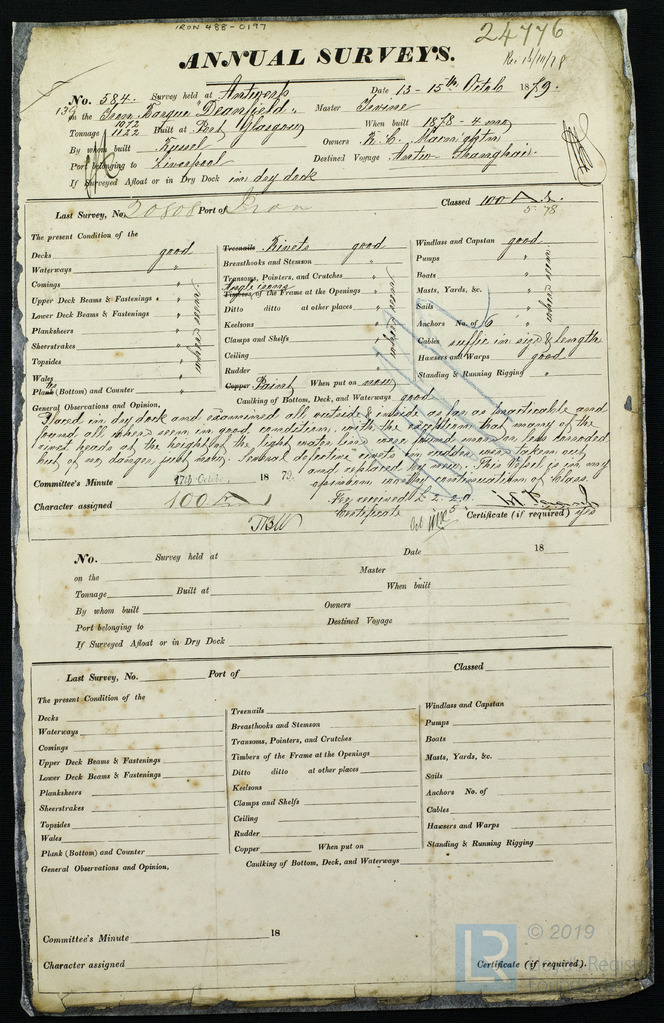 IRON 488-0197
24776
ANNUAL SURVEYS.
No. 584. Survey held at Antwerp Date 13 - 15th Octob 1879.
on the Iron Barque "Deanfield" Master Irvine
Tonnage 1072 1122 Built at Port Glasgow When built 1878 - 4 mo
By whom built Russel Owners R. C.
Port belonging to Liverpool Destined Voyage Antw Shanghai
If Surveyed Afloat or in Dry Dock in dry dock
Last Survey, No. 20808 Port of Iron Classed 100 A 1.
5.78
The present Condition of the
Decks good
Waterways "
Comings "
Upper Deck Beams & Fastenings "
Lower Deck Beams & Fastenings "
Planksheers "
Sheerstrakes "
Topsides "
Wales "
Plank (Bottom) and Counter "
where seen
Treenails Rivets good
Breasthooks and Stemson "
Transoms, Pointers, and Crutches "
Angle irons
Timbers of the Frame at the Openings "
Ditto ditto at other places "
Keelsons "
Clamps and Shelfs "
Ceiling
Rudder
Copper Paint When put on now
Caulking of Bottom, Deck, and Waterways good
where seen
Windlass and Capstan good
Pumps "
Boats "
Masts, Yards, &c. "
Sails "
Anchors No. of 6
Cables suffic in size & length
Hawsers and Warps good
Standing & Running Rigging "
where seen
General Observations and Opinion,
Placed in dry dock and examined all outside & inside as far as practicable and
found all where seen in good condition, with the exception that many of the
rivet heads at the height of the light water line were found more or less corroded,
but of no danger just now. Several defective rivets in rudder were taken out
and replaced by new. This Vessel is in my
opinion worthy continuation of Class.
Committee's Minute 17th October 1879.
Character assigned 100 A 1
Fee received £ 2. 2. 0.
Certificate 5
Certificate (if required) yes
No. Survey held at Date 18
on the Master
Tonnage Built at When built
By whom built Owners
Port belonging to Destined Voyage
If Surveyed Afloat or in Dry Dock
Last Survey, No. Port of Classed
The present Condition of the
Decks
Waterways
Comings
Upper Deck Beams & Fastenings
Lower Deck Beams & Fastenings
Planksheers
Sheerstrakes
Topsides
Wales
Plank (Bottom) and Counter
General Observations and Opinion,
Treenails
Breasthooks and Stemson
Transoms, Pointers, and Crutches
Timbers of the Frame at the Openings
Ditto ditto at other places
Keelsons
Clamps and Shelfs
Ceiling
Rudder
Copper When put on
Caulking of Bottom, Deck, and Waterways
Windlass and Capstan
Pumps
Boats
Masts, Yards, &c.
Sails
Anchors No. of
Cables
Hawsers and Warps
Standing & Running Rigging
Committee's Minute 18
Character assigned Certificate (if required).
LR © 2019